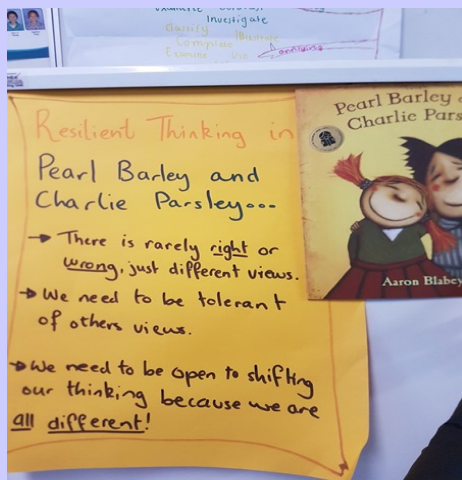 Investigate
Classify
Complete
Examine Use
Resilient Thinking in
Pearl Barley and
Charlie Parsley...
→ There is rarely right or
wrong, just different views.
→ We need to be tolerant
of others views.
→ We need to be open to shifting
our thinking because we are
all different!
Pearl Barley
Charlie Pars
Aaron Blabey